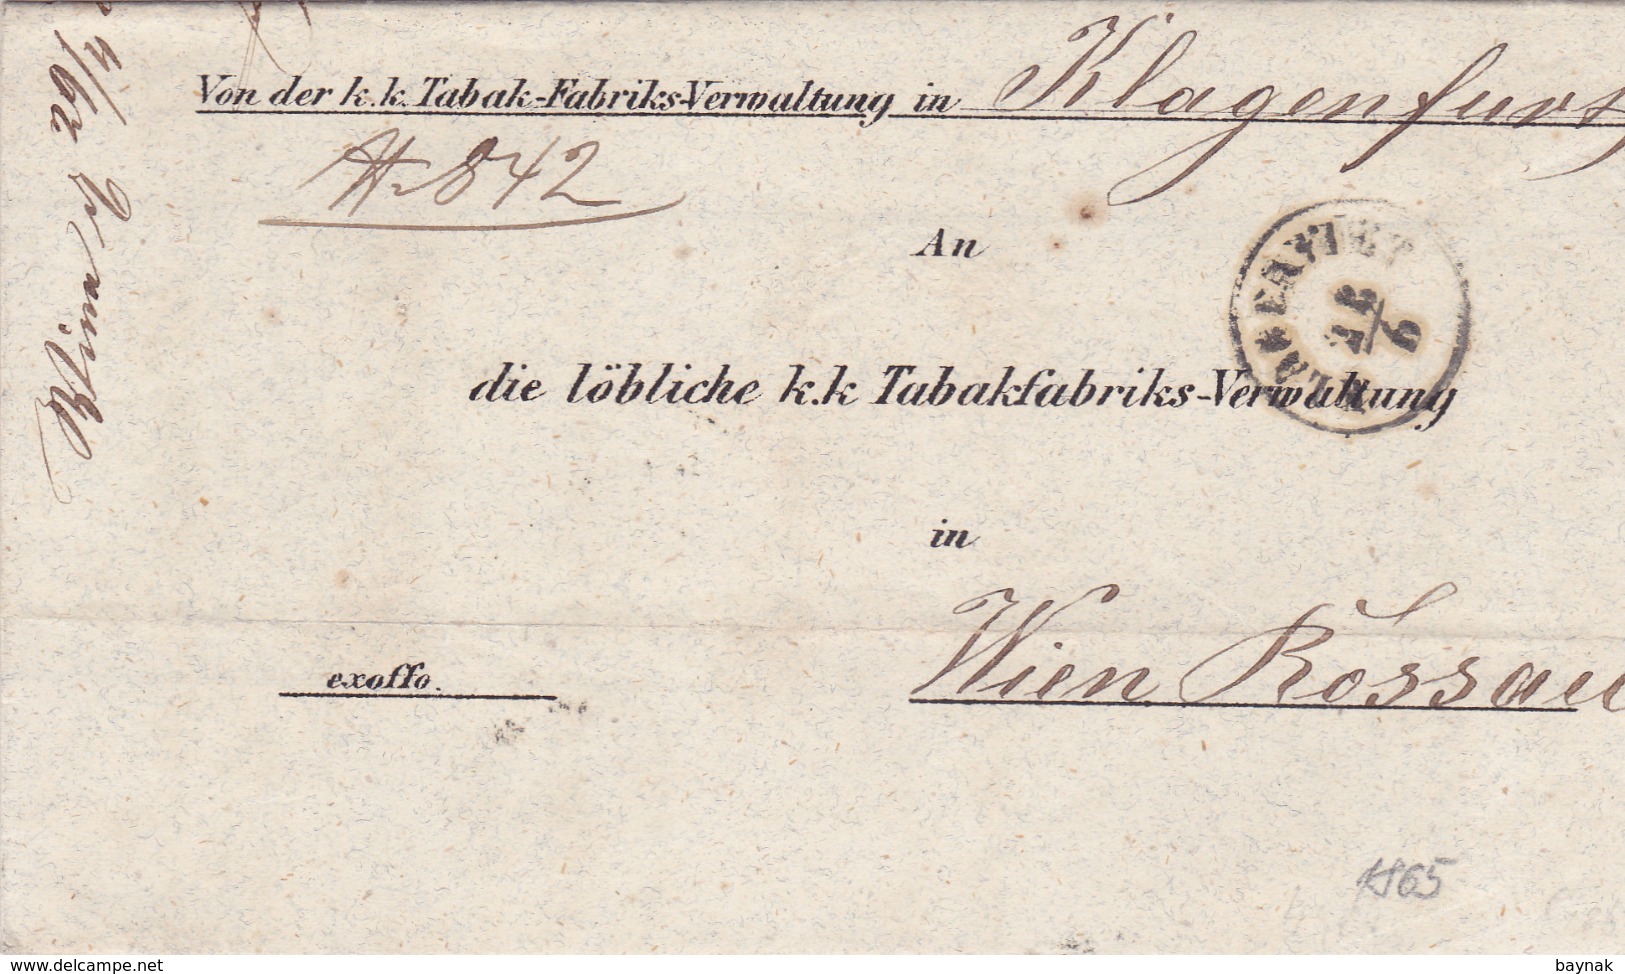 Von der k.k. Tabak-Fabriks-Verwaltung in Klagenfurt
№ 842
An
die löbliche k.k Tabakfabriks-Verwaltung
in
Wien Rossau
exoffo.
4/62
1865
www.delcampe.net
baynak